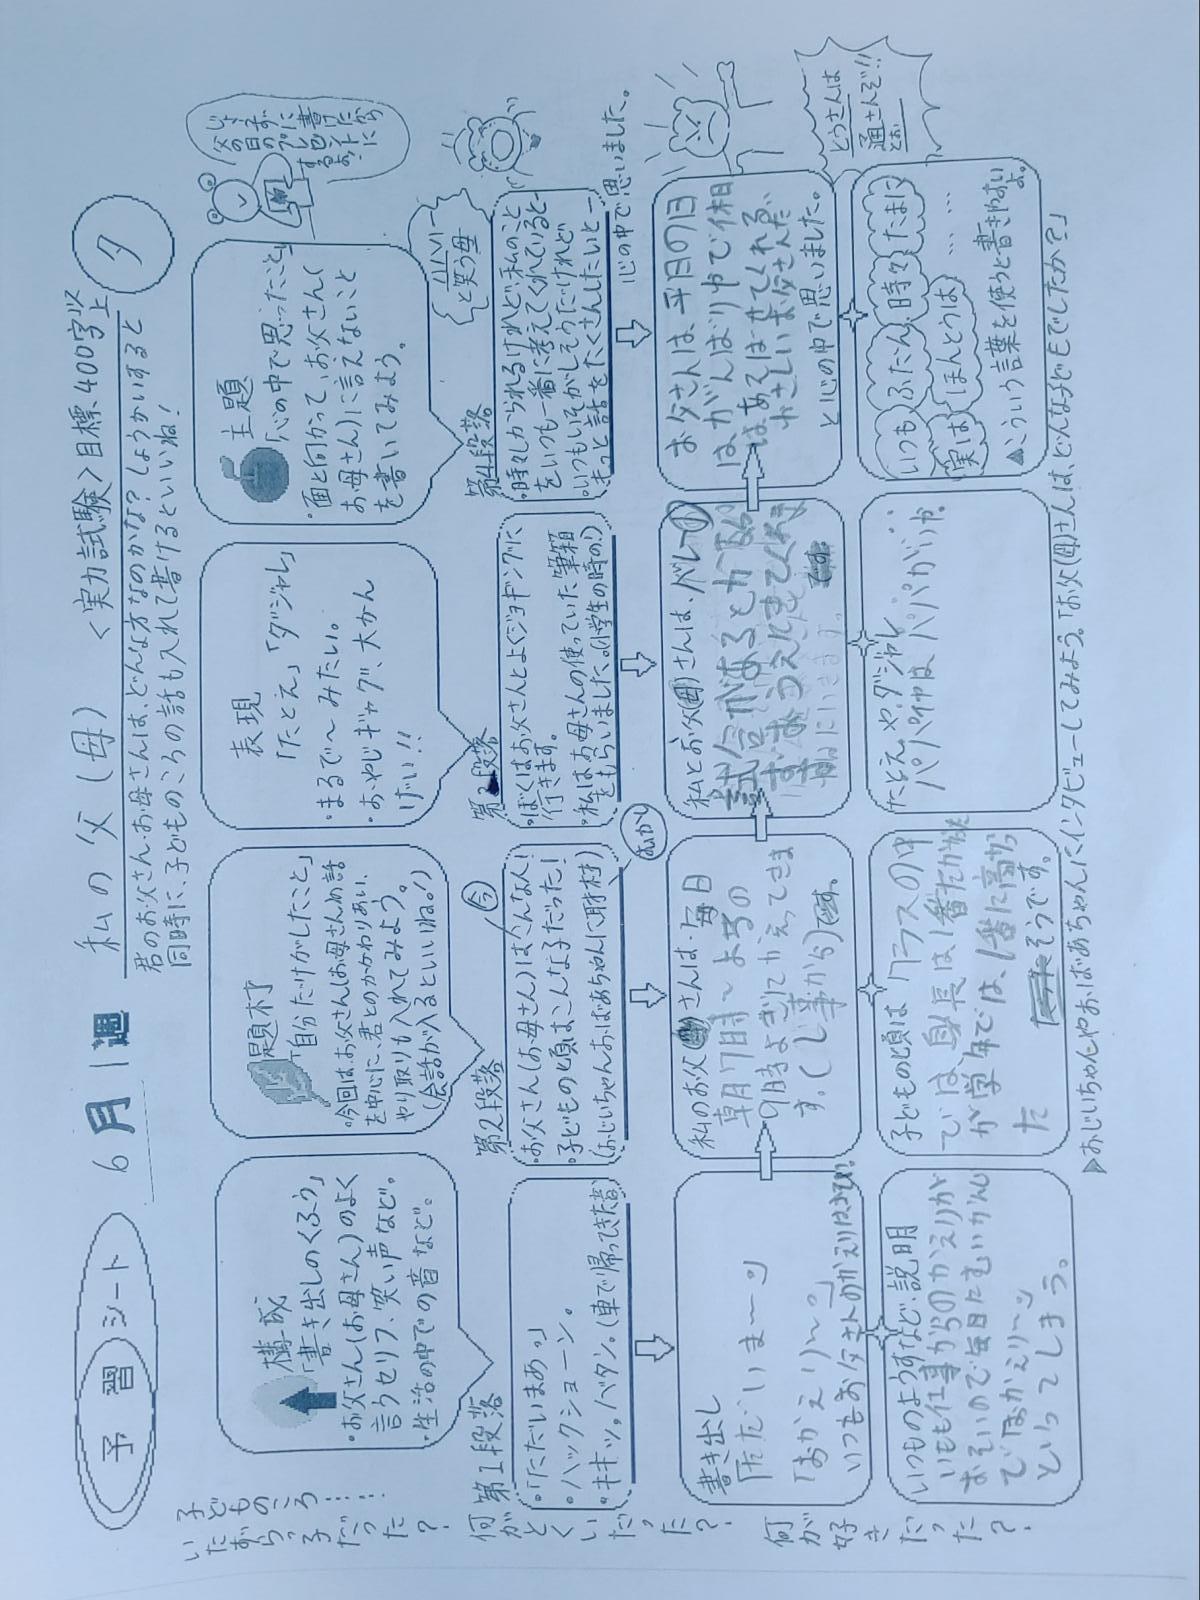 予習シート
6月1週
私の父(母)
<実力試験>目標400字以上
タ
君のお父さん・お母さんは、どんな方なのかな?しょうかいすると
同時に、子どものころの話も入れて書けるといいね!
構成
「書き出しのくふう」
・お父さん(お母さん)のよく
言うセリフ、笑い声など。
・生活の中での音など。
題材
「自分だけがしたこと」
・今回は、お父さんはお母さんの話
を中心に、君とのかかわりあい、
やり取りも入れてみよう。
(会話が入るといいね!)
表現
「たとえ」「ダジャレ」
・まるで〜みたい。
・おやじギャグ、大かん
げい!!
主題
「心の中で思ったこと」
・面と向かって、お父さん(
お母さん)に言えないこと
を書いてみよう。
父の日の
プレゼント
第1段落
・「ただいまあっ」
・ハックショーン。
・キキッ。バタン。(車で帰ってきた音)
第2段落
今
・お父さん(お母さん)はこんな人!
・子どもの頃はこんな子だった!
(おじいちゃんおばあちゃんに取材)
むかし
段落
・ぼくはお父さんとよくジョギングに
行きます。
・私はお母さんの使っていた筆箱
をもらいました。(小学生の時の!)
第4段落
ハハハー
と笑う母
・時々しかられるけれど、私のこと
をいつも一番に考えてくれていると−
・いつもいそがしそうだけれど
もっと話をたくさんしたいと−
心の中で思いました。
書き出し
「ただいま〜ッ」
「おかえりん。」
いつもお父さんのかえりはおそい。
私のお父さんは、毎日
朝7時〜よるの
9時よぎにかえってきま
す。(し事から)
私とお父(母)さんは、バレーの
試合があるとか
お父さんは平日の日
はがんばり中で休日
はあそばせてくれる
やさしいお父さんだ
と心の中で思いました。
とうさんは
通さんぞ!!
いつものようすなど、説明
いつも仕事からのかえりが
おそいので毎日
でおかえり〜ッ
といってしまう。
子どもの頃はクラスの中
では身長は1番だったが
が学年では、1番に高かっ
た そうです。
たとえや、ダジャレ
パパイヤはパパがいや。
いつも ふだん 時々 たまに
実は ほんとうは ……
▲こういう言葉を使うと書きやすいよ。
▶おじいちゃんやおばあちゃんにインタビューしてみよう。「お父(母)さんは、どんな子どもでしたか?」
子どものころ……
いたずらっ子だった?
何がとくいだった?
何が好きだった?